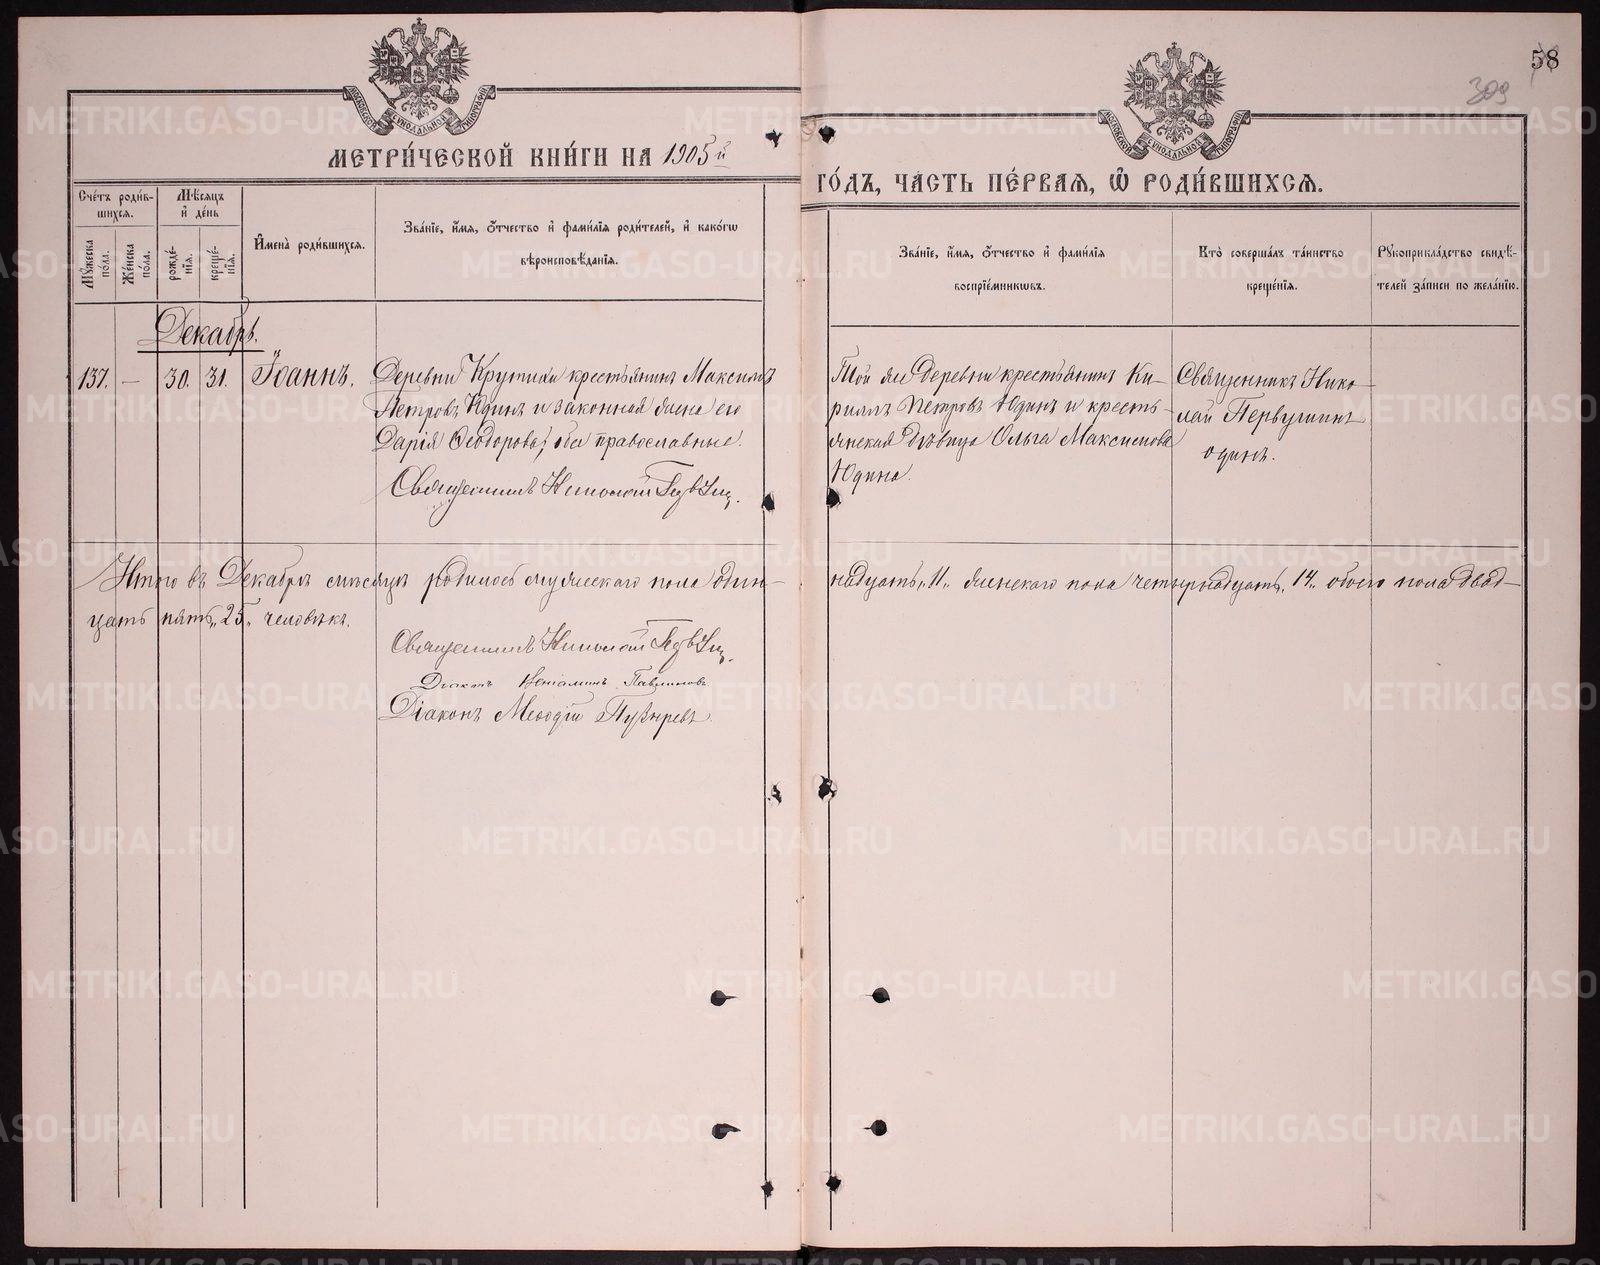 58
309
МОСКОВСКОЙ СѴНОДАЛЬНОЙ ТИПОГРАФІИ
МОСКОВСКОЙ СѴНОДАЛЬНОЙ ТИПОГРАФІИ
МЕТРИ́ЧЕСКОЙ КНИ́ГИ НА 1905й
ГО́ДЪ, ЧА́СТЬ ПЕ́РВАЯ, Ѡ҆ РОДИ́ВШИХСЯ.
Сче́тъ роди́в-
шихся.
Мѣ́сяцъ
и҆ де́нь
Мꙋ́жеска
по́ла.
Же́нска
по́ла.
рожде́-
нїя.
креще́-
нїя.
И҆мена̀ роди́вшихся.
Зва́нїе, и҆́мя, ѻ҆́тчество и҆ фами́лїя роди́телей, и҆ како́гѡ
вѣроисповѣ́данїя.
Зва́нїе, и҆́мя, ѻ҆́тчество и҆ фами́лїя
воспрїе́мникѡвъ.
Кто̀ соверша́лъ та́инство
креще́нїя.
Рꙋкоприкла́дство свидѣ́-
телей за́писи по жела́нїю.
Декабрь.
137. — 30. 31. Іоаннъ.
Деревни Крутихи крестьянинъ Максимъ
Петровъ Юдинъ и законная жена его
Дарія Ѳеодорова, оба православные.
Священникъ Николай
Той же деревни крестьянинъ Ки-
риллъ Петровъ Юдинъ и кресть-
янская дѣвица Ольга Максимова
Юдина.
Священникъ Нико-
лай Первушинъ
одинъ.
Итого въ Декабрѣ мѣсяцѣ родилось мужескаго пола один-
надцать „11„ женскаго пола четырнадцать „14„ обоего пола двад-
цать пять „25„ человѣкъ.
Священникъ Николай
Діаконъ Меѳодій Пузыревъ.
METRIKI.GASO-URAL.RU